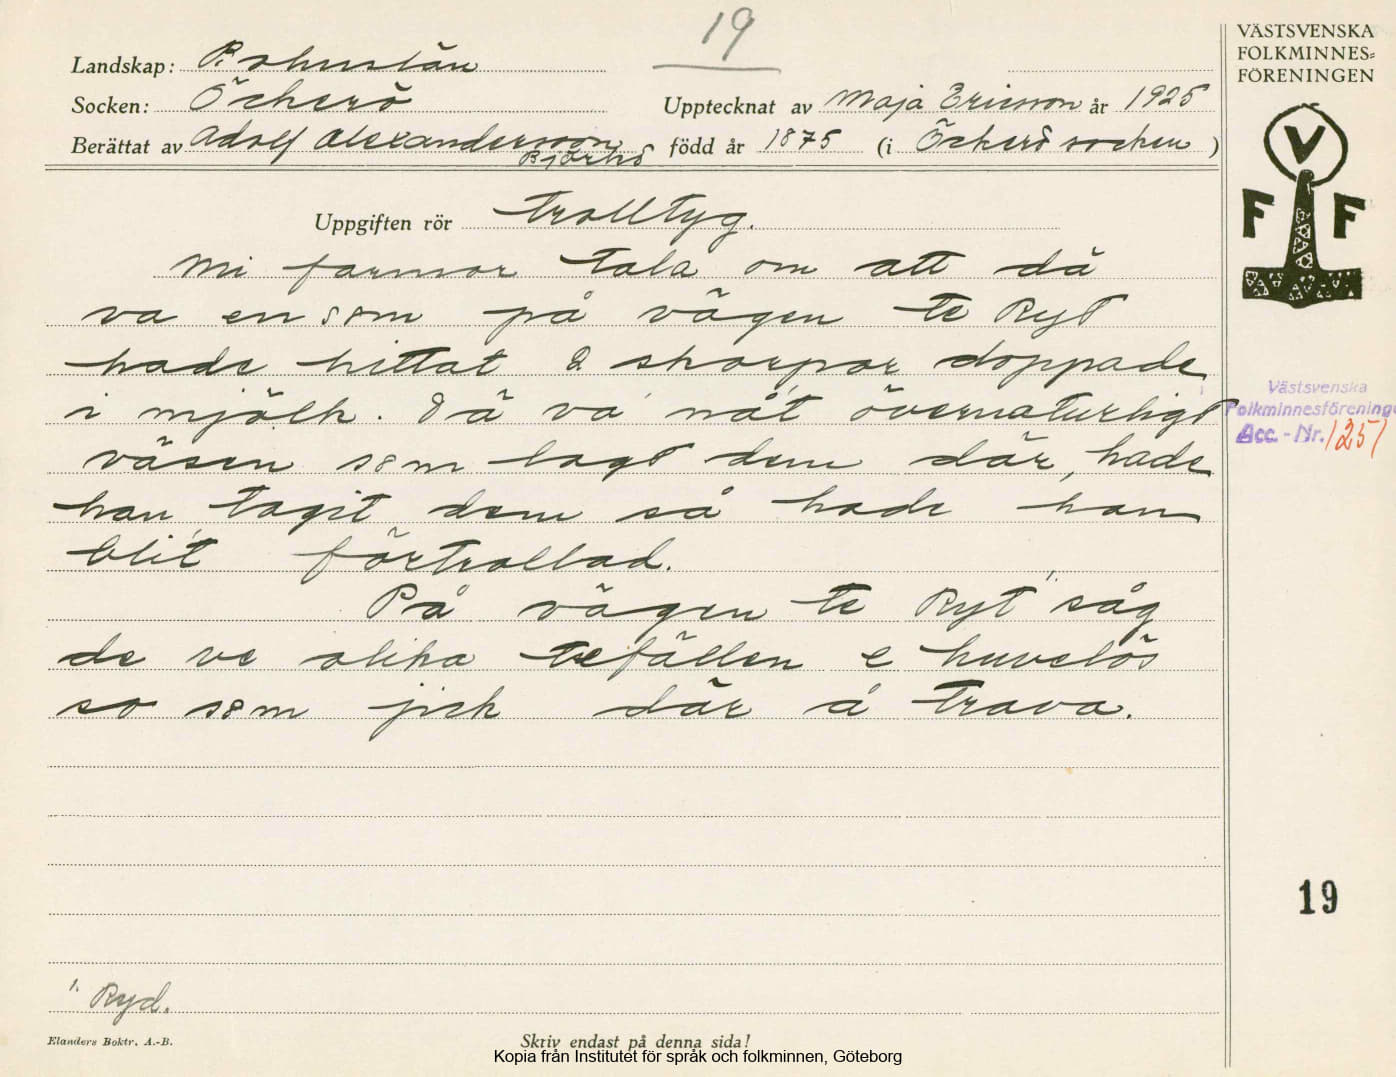 19
VÄSTSVENSKA
FOLKMINNES=
FÖRENINGEN
Landskap: Bohuslän
Socken: Öckerö Upptecknat av Maja Ericson år 1925
Berättat av Adolf Alexandersson, född år 1875 (i Öckerö socken)
Björkö
V
F F
Uppgiften rör Trolltyg.
Mi farmor tala om att då
va en som på vägen te Ryt
hade hittat 2 skorpor doppade
i mjölk. Dä va nåt övernaturligt
väsen som lagt dem där, hade
han tagit dem så hade han
blit förtrollad.
På vägen te Ryt¹ såg
de ve olika tefällen e huvelös
so som jick där å trava.
Västsvenska
Folkminnesförening
Acc. - Nr. 1251
19
1. Ryd.
Elanders Boktr. A.-B.
Skriv endast på denna sida!
Kopia från Institutet för språk och folkminnen, Göteborg